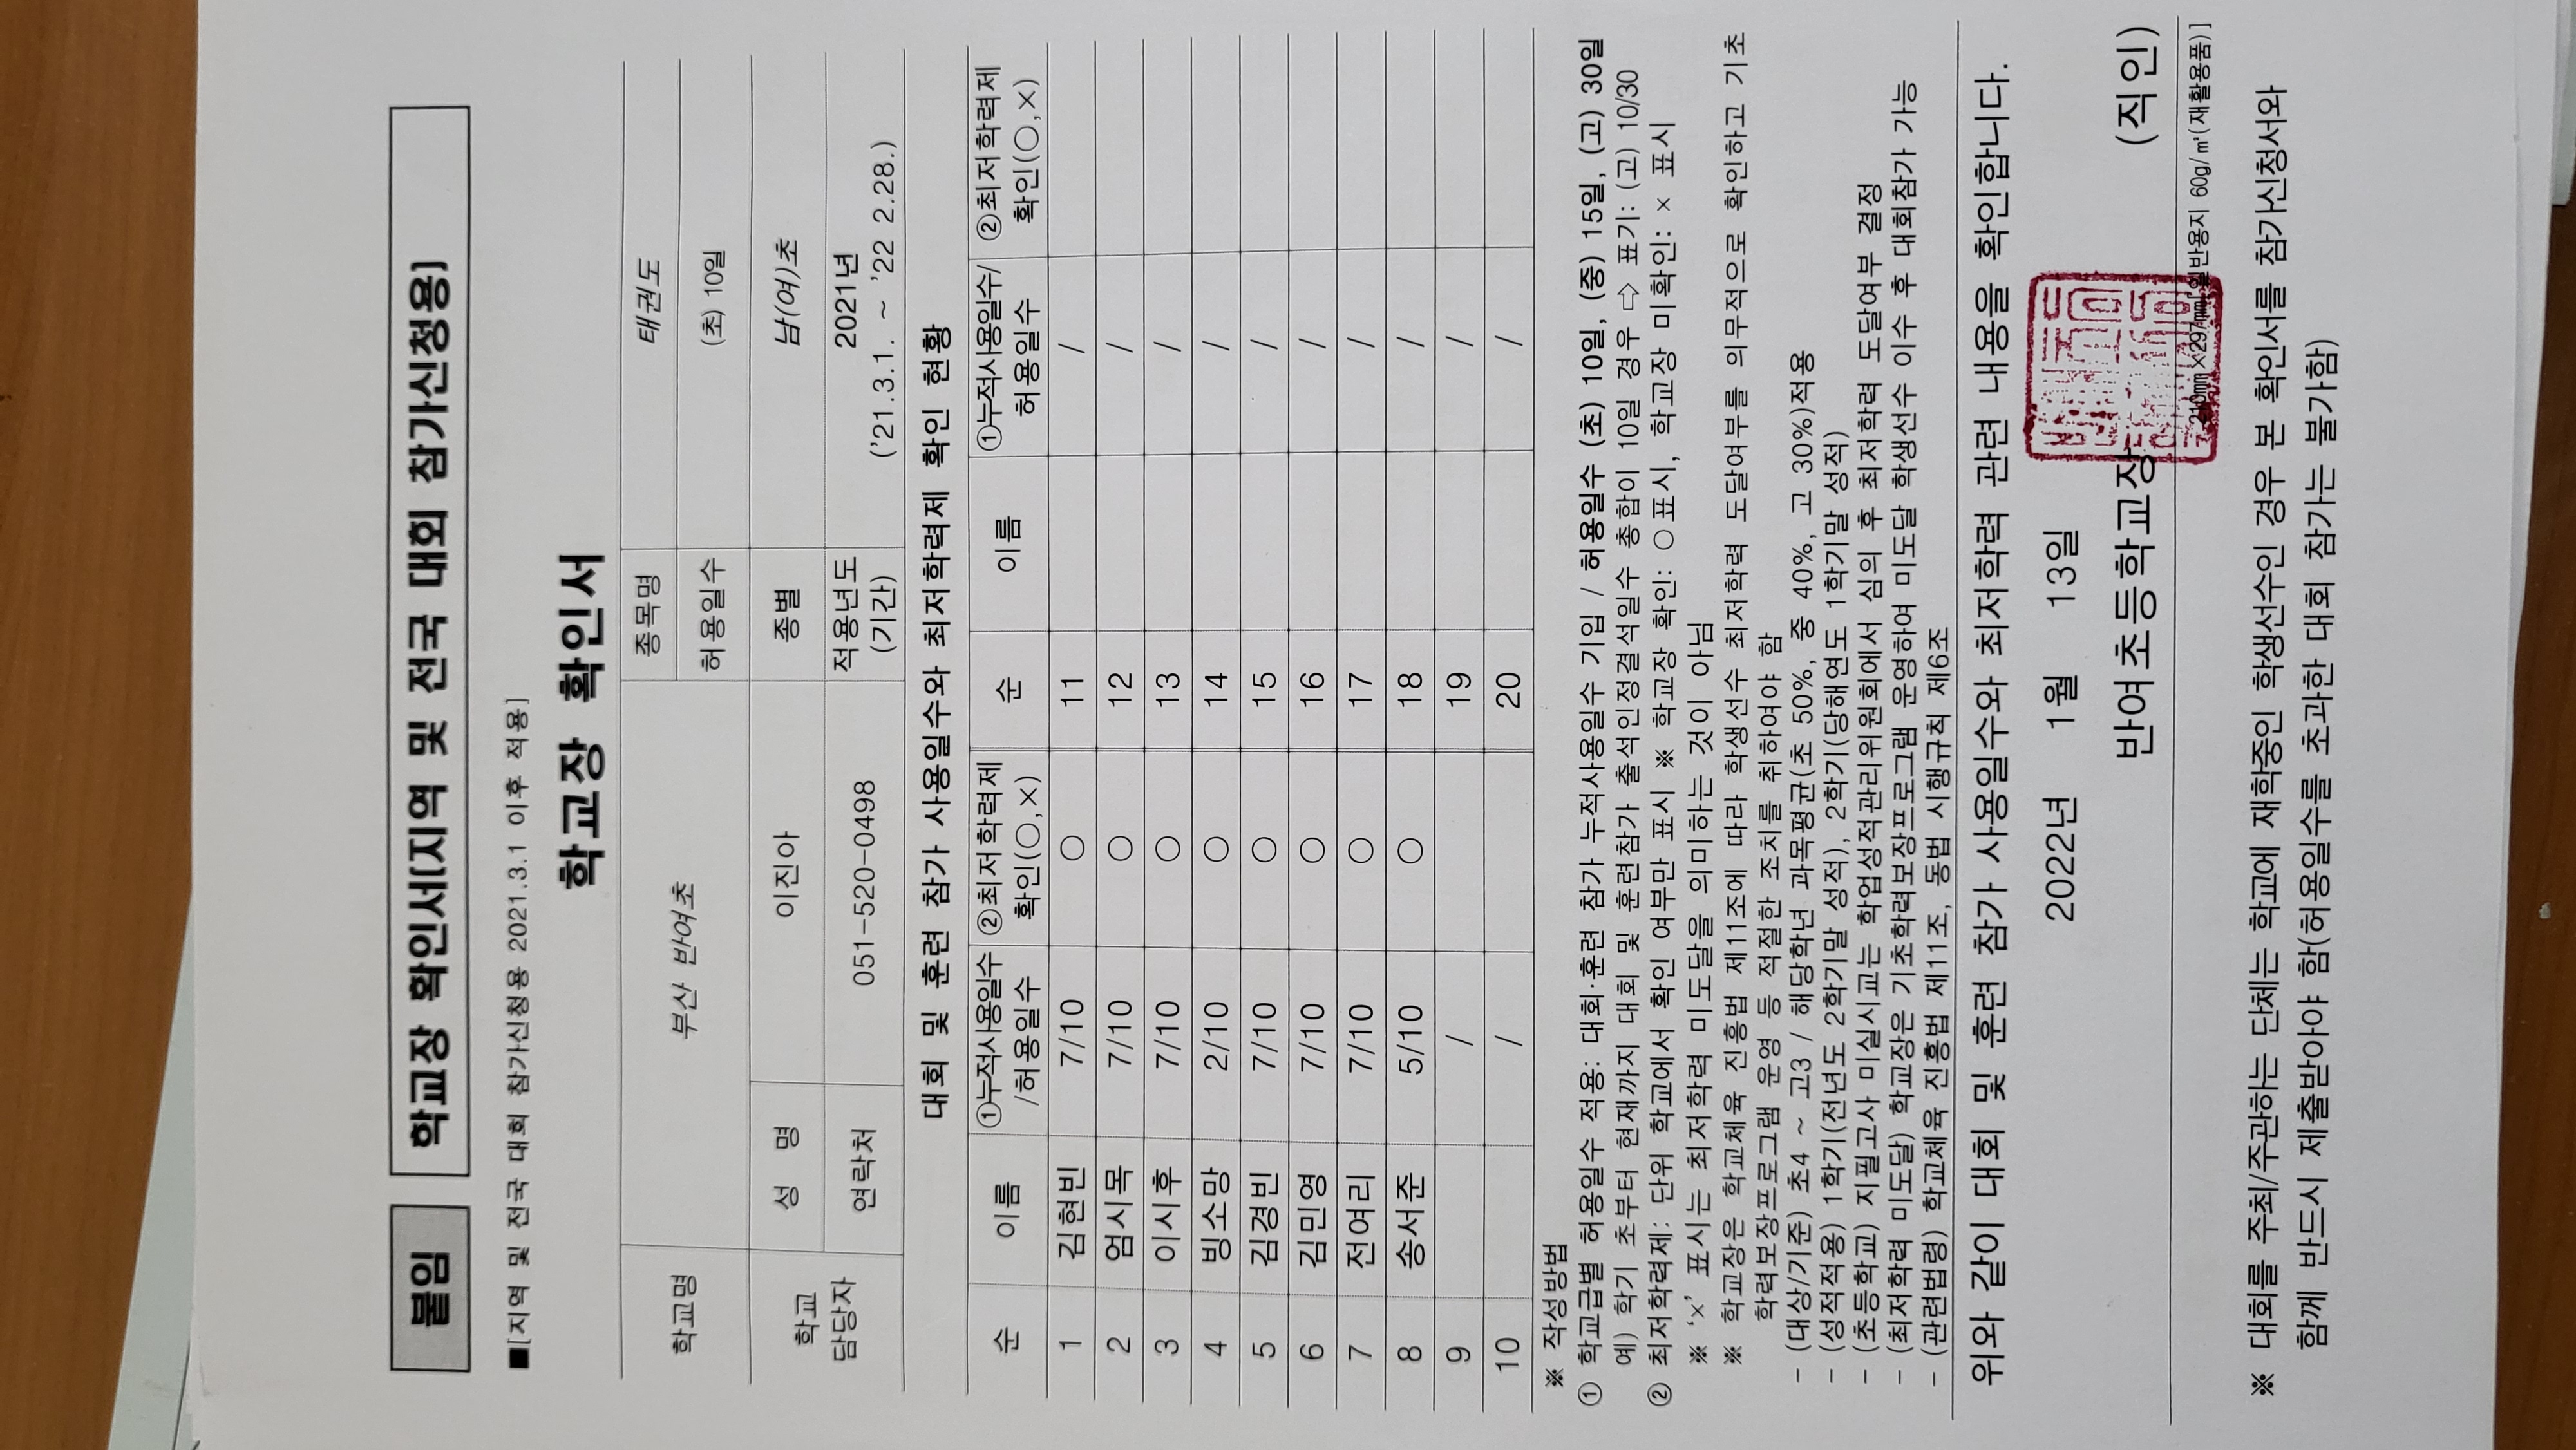 붙임
학교장 확인서(지역 및 전국 대회 참가신청용)
■[지역 및 전국 대회 참가신청용 2021.3.1 이후 적용]
학교장 확인서
학교명 부산 반여초 종목명 태권도
허용일수 (초) 10일
학교 담당자 성 명 이진아 종별 남(여)초
연락처 051-520-0498 적용년도 (기간) 2021년 ('21.3.1. ~ '22 2.28.)
대회 및 훈련 참가 사용일수와 최저학력제 확인 현황
순 이름 ①누적사용일수/허용일수 ②최저학력제 확인(○,×) 순 이름 ①누적사용일수/허용일수 ②최저학력제 확인(○,×)
1 김현빈 7/10 ○ 11 /
2 엄시목 7/10 ○ 12 /
3 이시후 7/10 ○ 13 /
4 빙소망 2/10 ○ 14 /
5 김경빈 7/10 ○ 15 /
6 김민영 7/10 ○ 16 /
7 전여리 7/10 ○ 17 /
8 송서준 5/10 ○ 18 /
9 / 19 /
10 / 20 /
※ 작성방법
① 학교급별 허용일수 적용: 대회·훈련 참가 누적사용일수 기입 / 허용일수 (초) 10일, (중) 15일, (고) 30일
예) 학기 초부터 현재까지 대회 및 훈련참가 출석인정결석일수 총합이 10일 경우 ⇨ 표기: (고) 10/30
② 최저학력제: 단위 학교에서 확인 여부만 표시 ※ 학교장 확인: ○표시, 학교장 미확인: × 표시
※ '×' 표시는 최저학력 미도달을 의미하는 것이 아님
※ 학교장은 학교체육 진흥법 제11조에 따라 학생선수 최저학력 도달여부를 의무적으로 확인하고 기초
학력보장프로그램 운영 등 적절한 조치를 취하여야 함
- (대상/기준) 초4 ~ 고3 / 해당학년 과목평균(초 50%, 중 40%, 고 30%)적용
- (성적적용) 1학기(전년도 2학기말 성적), 2학기(당해연도 1학기말 성적)
- (초등학교) 지필고사 미실시교는 학업성적관리위원회에서 심의 후 최저학력 도달여부 결정
- (최저학력 미도달) 학교장은 기초학력보장프로그램 운영하여 미도달 학생선수 이수 후 대회참가 가능
- (관련법령) 학교체육 진흥법 제11조, 동법 시행규칙 제6조
위와 같이 대회 및 훈련 참가 사용일수와 최저학력 관련 내용을 확인합니다.
2022년 1월 13일
반여초등학교장 (직인)
210㎜×297㎜[일반용지 60g/㎡(재활용품)]
※ 대회를 주최/주관하는 단체는 학교에 재학중인 학생선수인 경우 본 확인서를 참가신청서와
함께 반드시 제출받아야 함(허용일수를 초과한 대회 참가는 불가함)